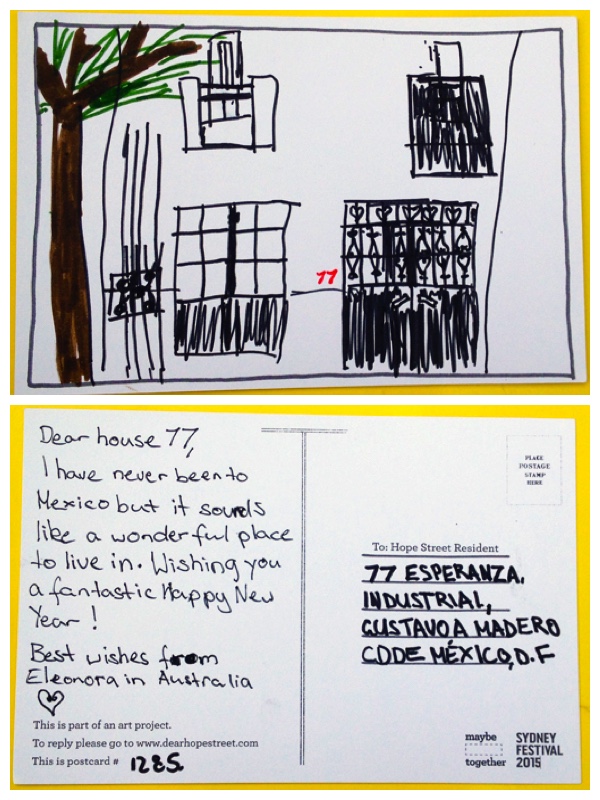 77
Dear house 77,
I have never been to
Mexico but it sounds
like a wonderful place
to live in. Wishing you
a fantastic Happy New
Year!
Best wishes from
Eleonora in Australia
This is part of an art project.
To reply please go to www.dearhopestreet.com
This is postcard # 1285.
PLACE
POSTAGE
STAMP
HERE
To: Hope Street Resident
77 ESPERANZA.
INDUSTRIAL,
GUSTAVO A MADERO
CODE MÉXICO, D.F
maybe
together
SYDNEY
FESTIVAL
2015